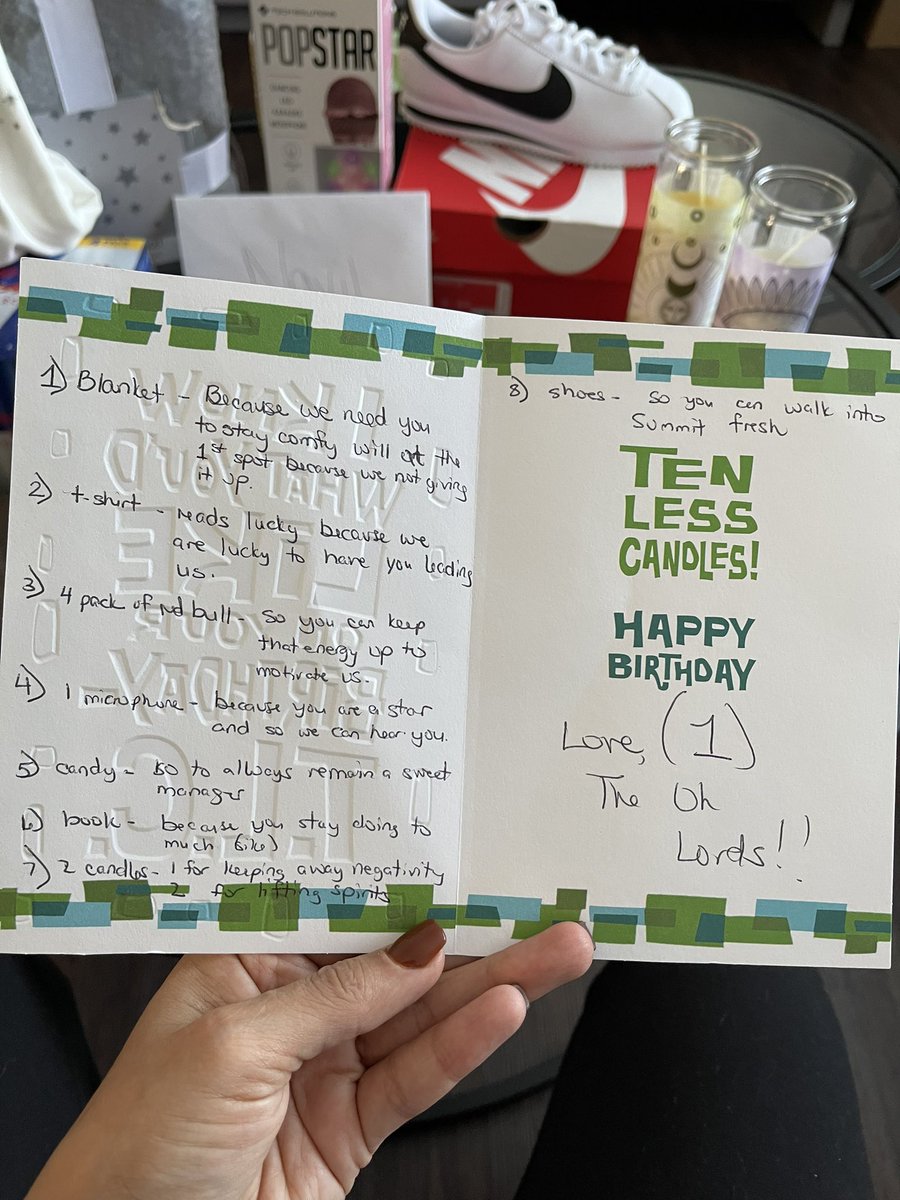 TECH SOLUTIONS
POPSTAR
1) Blanket - Because we need you
to stay comfy will at the
1st spot because we not giving
it up.
2) t-shirt - reads lucky because we
are lucky to have you leading
us.
3) 4 pack of red bull - so you can keep
that energy up to
motivate us.
4) 1 microphone - because you are a star
and so we can hear you.
5) candy - so to always remain a sweet
manager
6) book - because you stay doing to
much (like)
7) 2 candles - 1 for keeping away negativity
2 for lifting spirits
8) shoes - so you can walk into
Summit fresh
TEN
LESS
CANDLES!
HAPPY
BIRTHDAY
Love, (1)
The Oh
Lords!!